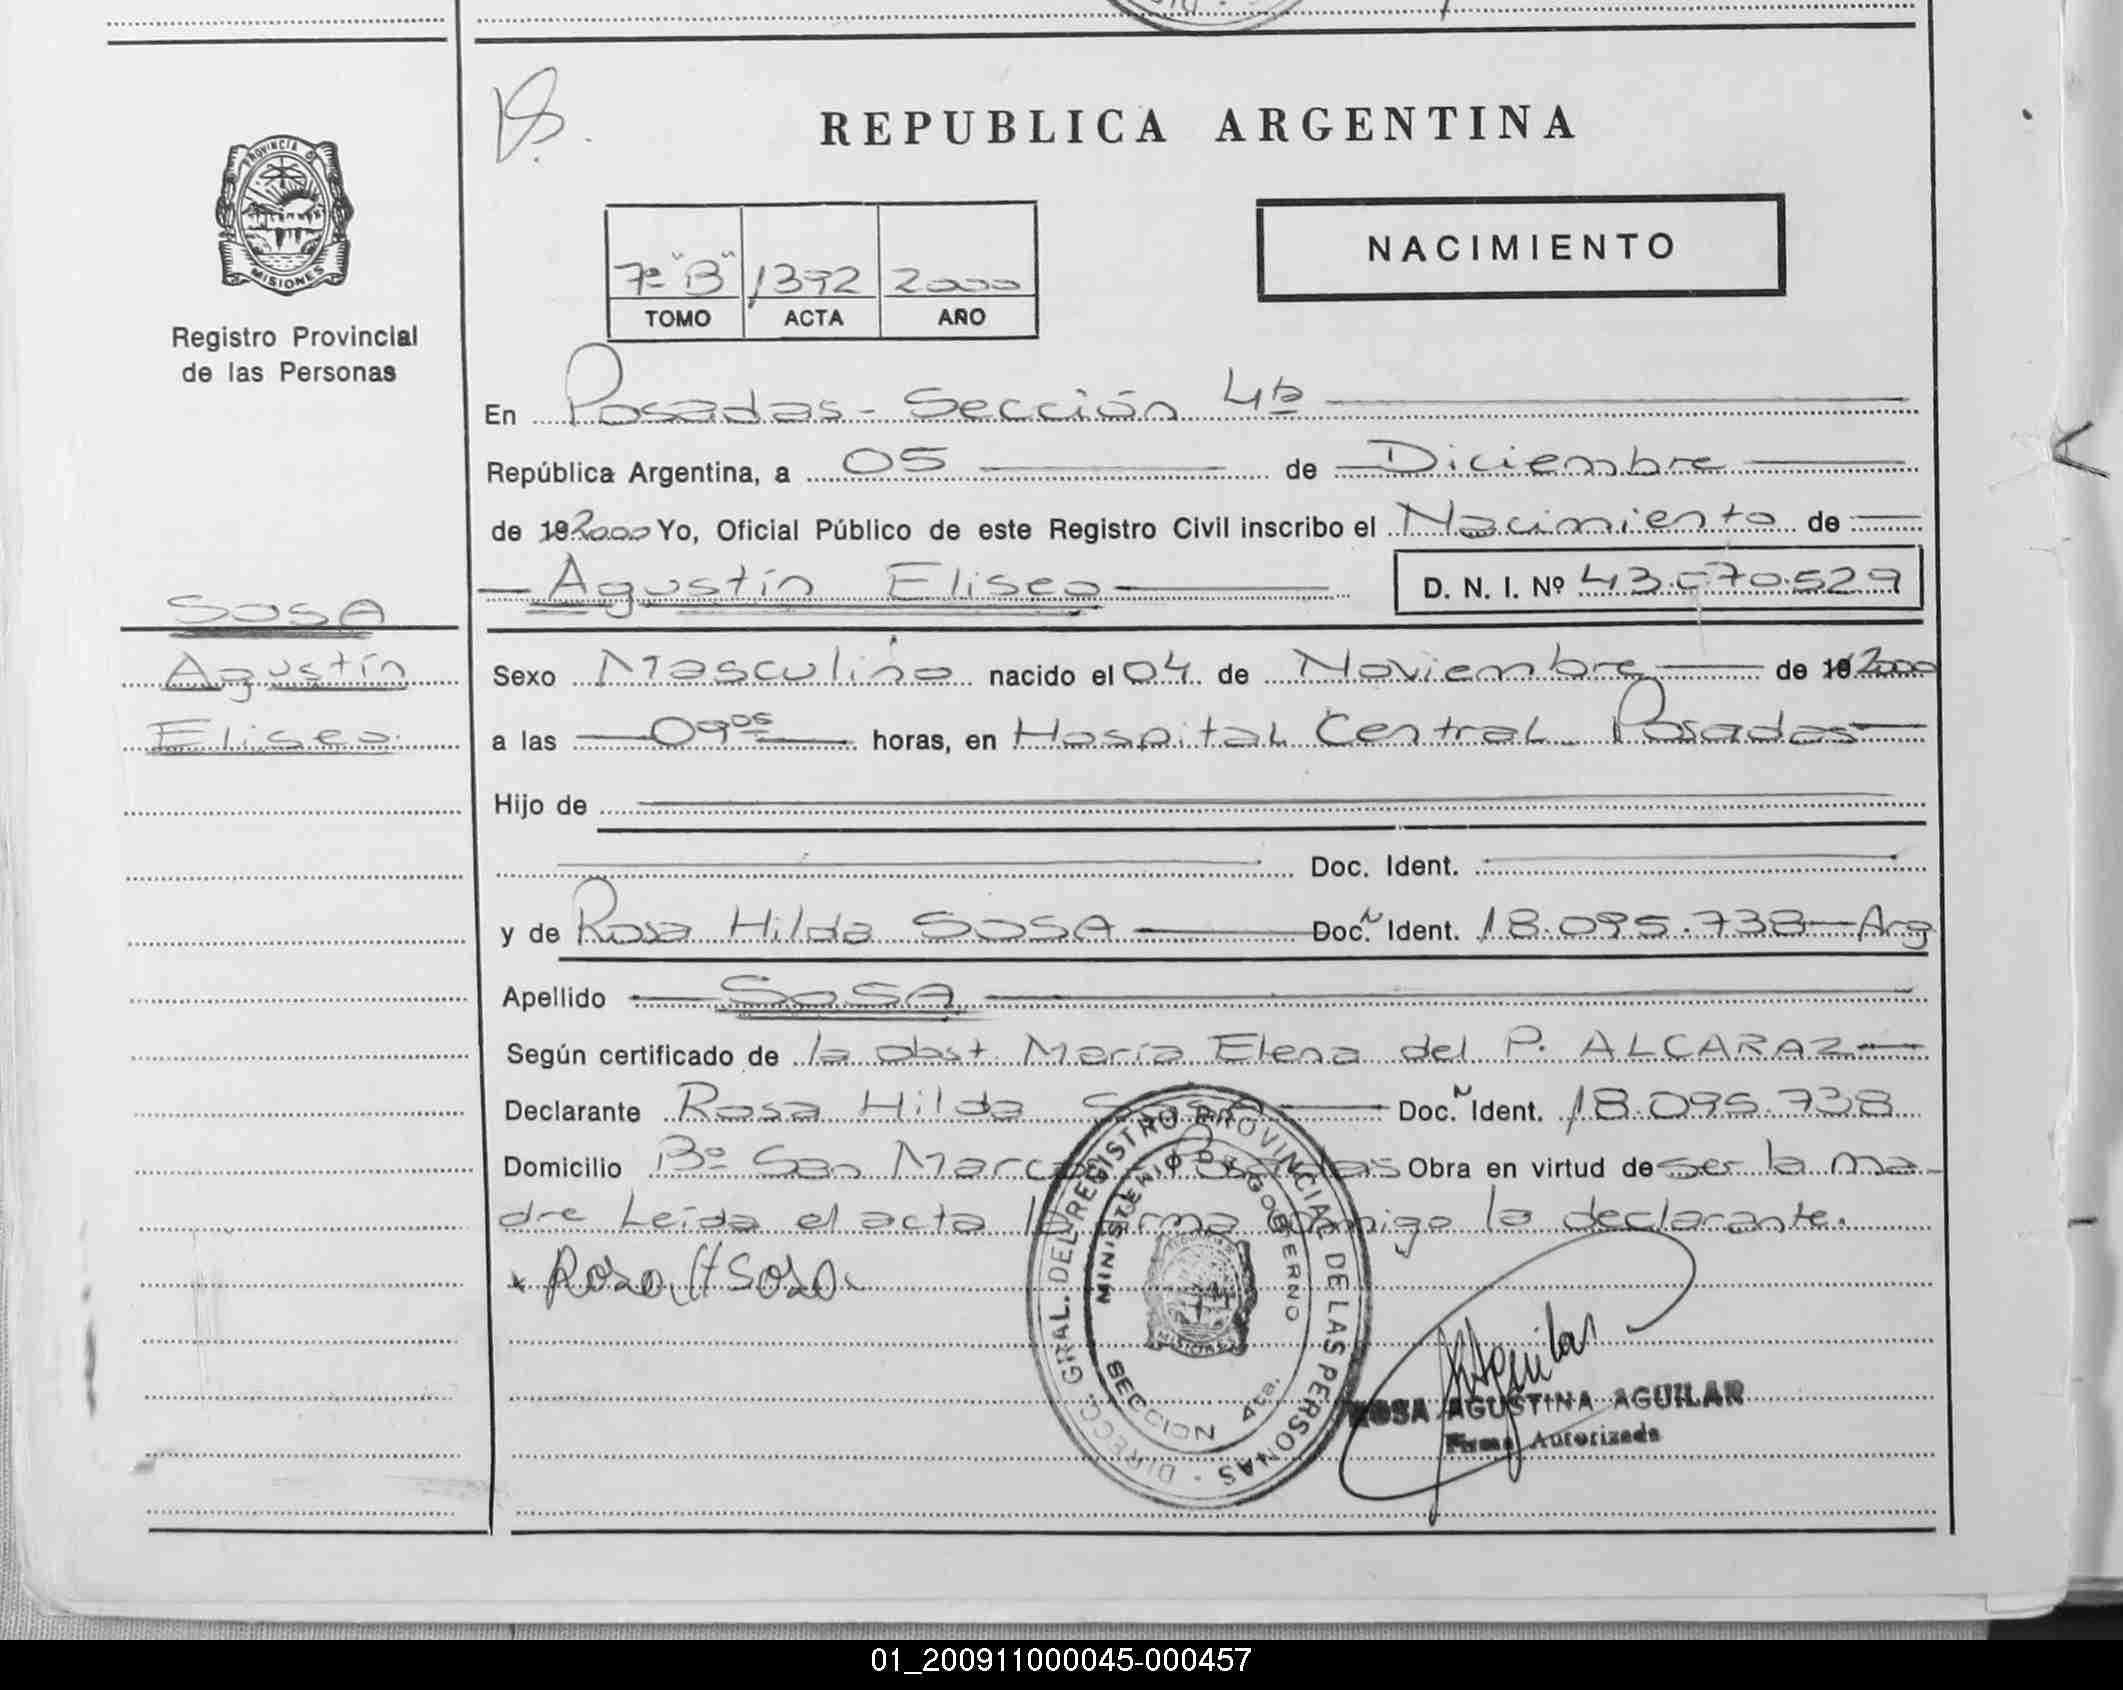 REPUBLICA ARGENTINA
PROVINCIA DE
MISIONES
Registro Provincial
de las Personas
NACIMIENTO
7º "B" 1392 2000
TOMO ACTA AÑO
En Posadas - Sección 4ta
República Argentina, a 05 de Diciembre
de 192000 Yo, Oficial Público de este Registro Civil inscribo el Nacimiento de
Agustín Eliseo D. N. I. Nº 43.070.529
SOSA
Agustín
Eliseo
Sexo Masculino nacido el 04 de Noviembre de 192000
a las 09 05 horas, en Hospital Central Posadas
Hijo de
Doc. Ident.
y de Rosa Hilda SOSA Doc. Ident. 18.095.738 - Arg
Apellido SOSA
Según certificado de la obst. María Elena del P. ALCARAZ
Declarante Rosa Hilda Sosa Doc. Ident. 18.095.738
Domicilio Bº San Marcos Posadas Obra en virtud de ser la ma-
dre Leída el acta la firma conmigo la declarante.
Rosa H Sosa
DIRECC. GRAL. DEL REGISTRO PROVINCIAL DE LAS PERSONAS
MINISTERIO DE GOBIERNO
MISIONES
SECCION 4ta.
Aguilar
ROSA AGUSTINA AGUILAR
Firma Autorizada
01_200911000045-000457